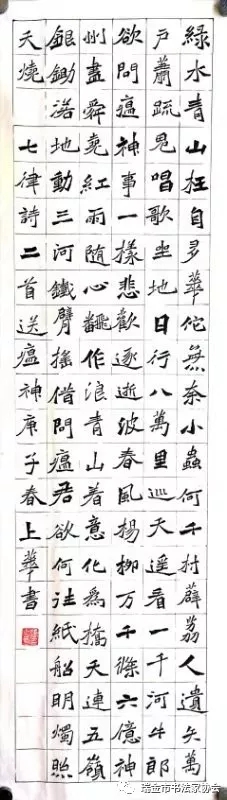 綠水青山枉自多華佗無奈小蟲何千村薜荔人遺矢萬
戶蕭疏鬼唱歌坐地日行八萬里巡天遙看一千河牛郎
欲問瘟神事一樣悲歡逐逝波春風楊柳万千條六億神
州盡舜堯紅雨隨心飜作浪青山着意化為橋天連五嶺
銀鋤落地動三河鐵臂搖借問瘟君欲何往紙船明燭照
天燒 七律詩二首送瘟神庚子春上華書
瑞金市书法家协会